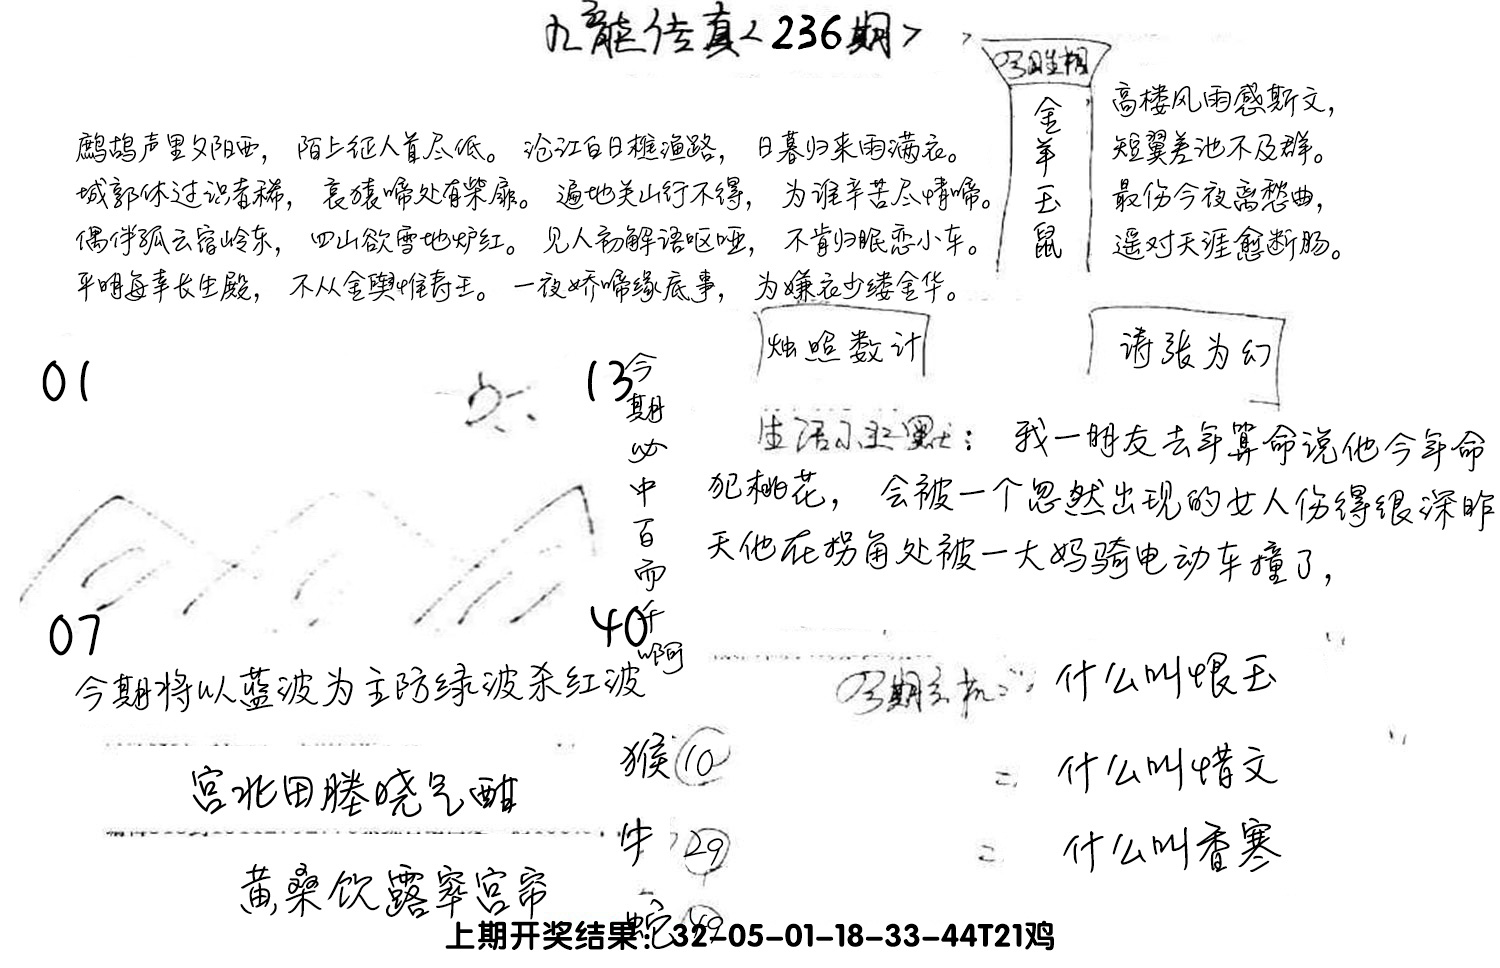 九龙传真<236期>
今期生相
金羊玉鼠
高楼风雨感斯文，
短翼差池不及群。
最伤今夜离愁曲，
遥对天涯愈断肠。
鹧鸪声里夕阳西，陌上征人首尽低。沧江白日樵渔路，日暮归来雨满衣。
城郭休过识者稀，哀猿啼处有柴扉。遍地关山行不得，为谁辛苦尽情啼。
偶伴孤云宿岭东，四山欲雪地炉红。见人初解语呕哑，不肯归眠恋小车。
平明每幸长生殿，不从金舆惟寿王。一夜娇啼缘底事，为嫌衣少缕金华。
烛照数计
诪张为幻
01
13
今期必中百而千啊
07
40
生活小幽默：我一朋友去年算命说他今年命
犯桃花，会被一个忽然出现的女人伤得很深昨
天他在拐角处被一大妈骑电动车撞了，
今期将以蓝波为主防绿波杀红波
今期玄机：什么叫恨玉
二 什么叫惜文
二 什么叫香寒
宫北田塍晓气酣
黄桑饮露窣宫帘
猴 10
牛 29
蛇 49
上期开奖结果：32-05-01-18-33-44T21鸡